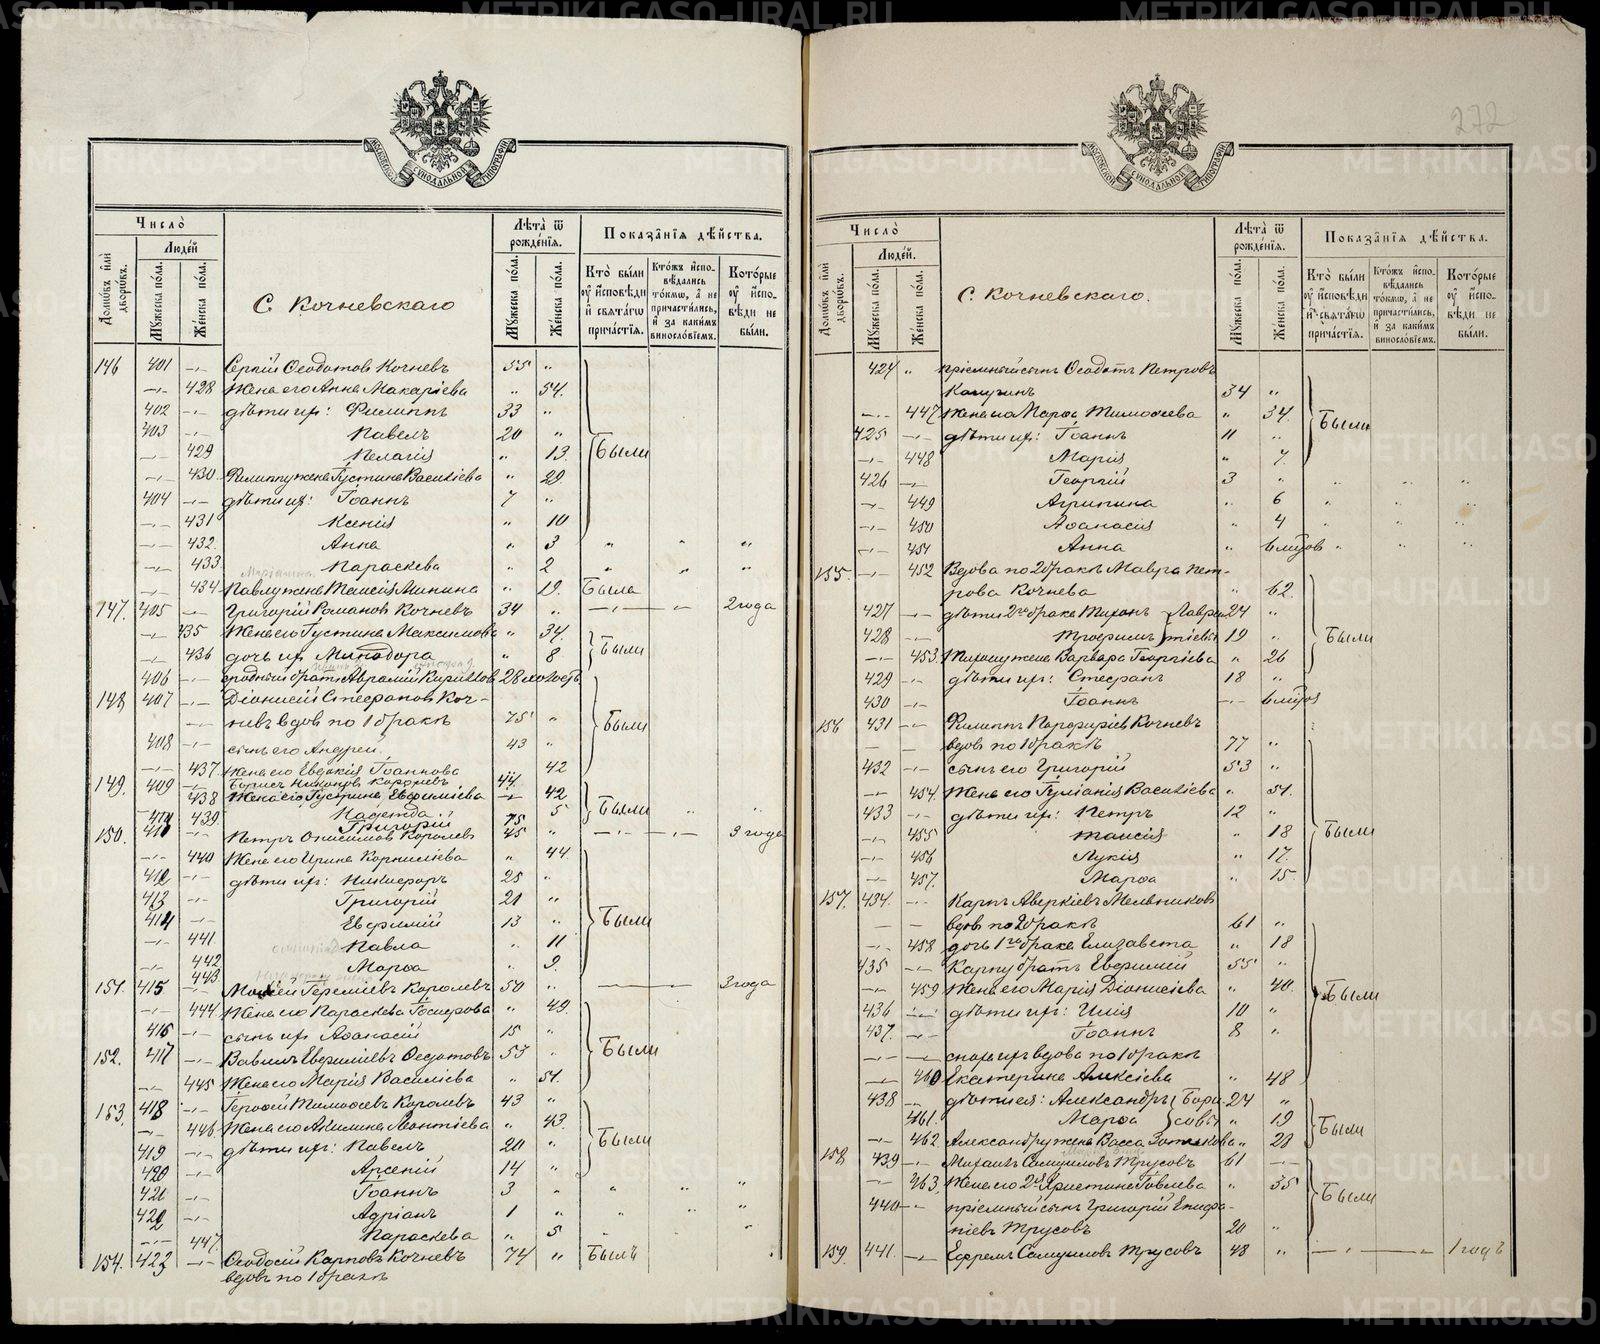 С. Кочневскаго
Число̀
Людей
Домовъ или дворовъ.
Мужеска пола.
Женска пола.
Лѣта ѿ рожденія.
Мужеска пола.
Женска пола.
Показанія дѣйства.
Кто были у исповѣди и святаго причастія.
Ктожъ исповѣдались токмо, а не причастились, и за какимъ винословіемъ.
Которые у исповѣди не были.
146 401 -"- Сергій Ѳеодотовъ Кочневъ 55 "
-"- 428 Жена его Анна Макаріева " 54.
402 -"- дѣти их: Филиппъ 33 "
403 -"- Павелъ 20 "
-"- 429 Пелагія " 13 Были
-"- 430 Филиппу жена Іустина Василіева " 29
404 -"- дѣти их: Іоаннъ 7 "
-"- 431 Ксенія " 10
-"- 432 Анна " 3 " " "
-"- 433 Параскева " 2 " " "
-"- 434 Павлу жена Таисія Минина " 19. Была
147. 405 -"- Григорій Романов Кочневъ 34 " -"- -"- 2 года
-"- 435 Жена его Іустина Максимова " 34.
-"- 436 дочь их Минодора " 8 Были
406 -"- сродный братъ Авраамій Кириллов 28 холостъ
148 407 -"- Діонисій Стефанов Коч-
-"- невъ вдов по 1 бракѣ 75 " Были
408 -"- сынъ его Андрей. 43 "
-"- 437. Жена его Евдокія Іоаннова 42
149. 409 -"- Борисъ Никоновъ Королевъ 44
438 Жена его Іустина Евфиміева -"- 42 Были
439 Надежда 5
Григорій 15
150. -"- Петръ Онисимов Королевъ 45 " -"- -"- 3 года
-"- 440 Жена его Ирина Корниліева " 44.
412 -"- дѣти их: Никифоръ 25 "
413 -"- Григорій 21 "
414 -"- Евфимій 13 " Были
-"- 441 Павла " 11
-"- 442 Марѳа " 9.
151. 415 443 Моисей Іереміевъ Королевъ 50 " 3 года
-"- 444 Жена его Параскева Іосифова " 49.
416 -"- сынъ их Аѳанасій 15 "
152. 417 -"- Вавилъ Евфиміевъ Ѳедотовъ 53 " Были
-"- 445 Жена его Марія Василіева " 51.
153. 418 -"- Іероѳей Тимоѳеев Королевъ 43 "
-"- 446 Жена его Акилина Леонтіева " 43.
419 -"- дѣти их: Павелъ 20 " Были
420 -"- Арсеній 14 "
421 -"- Іоаннъ 3 " " " "
422 -"- Адріанъ 1 " " " "
-"- 447. Параскева " 5 " "
154. 423 -"- Ѳеодосій Карповъ Кочневъ 74 " Былъ
вдовъ по 1 бракѣ
272
С. Кочневскаго.
Число̀
Людей.
Домовъ или дворовъ.
Мужеска пола.
Женска пола.
Лѣта ѿ рожденія.
Мужеска пола.
Женска пола.
Показанія дѣйства.
Кто были у исповѣди и святаго причастія.
Ктожъ исповѣдались токмо, а не причастились, и за какимъ винословіемъ.
Которые у исповѣди не были.
424 " пріемный сынъ Ѳеодотъ Петровъ
34 "
-"- 447 Жена его Марѳа Тимоѳеева " 34. Были
425 -"- дѣти их: Іоаннъ 11 "
-"- 448 Марія " 7.
426 -"- Георгій 3 " " " "
-"- 449 Агрипина " 6 " " "
-"- 450 Аѳанасія " 4 " " "
-"- 451 Анна " " "
155. -"- 452 Вдова по 2 бракѣ Мавра Пет-
рова Кочнева " 62.
427 -"- дѣти 2го брака Тихон Лаврен 24 "
428 -"- Трофимъ тіевы 19 " Были
-"- 453. Тихону жена Варвара Георгіева " 26
429 -"- дѣти их: Стефанъ 18 "
430 -"- Іоаннъ -"-
156 431 -"- Филиппъ Порфиріев Кочневъ
вдов по 1 бракѣ 77 "
432 -"- сынъ его Григорій 53 "
-"- 454. Жена его Іуліанія Василіева " 51.
433 -"- дѣти их: Петръ 12 "
-"- 455 Таисія " 18 Были
-"- 456 Лукія " 17.
-"- 457. Марѳа " 15.
157. 434. -"- Карпъ Аверкіевъ Мельников
вдов по 2 бракѣ 61 "
-"- 458 дочь 1го брака Елизавета " 18
435 -"- Карпу братъ Евфимій 55 "
-"- 459 Жена его Марія Діонисіева " 40. Были
436 -"- дѣти их: Илія 10 "
437. -"- Іоаннъ 8 "
-"- -"- сноха их вдова по 1 бракѣ
460 Екатерина Алексіева " 48
438 -"- дѣти ея: Александръ Бори 24 "
461. Марѳа совы " 19 Были
-"- 462 Александру жена Васса " 23
158 439 -"- Михаилъ Самуиловъ Трусовъ 61 -"-
-"- 463. Жена его 2я Христина Іовлева " 35 Были
440 -"- пріемный сынъ Григорій Епифа-
ніев Трусовъ 20 "
159. 441. -"- Ефремъ Самуилов Трусовъ 48 " -"- -"- 1 годъ
METRIKI.GASO-URAL.RU